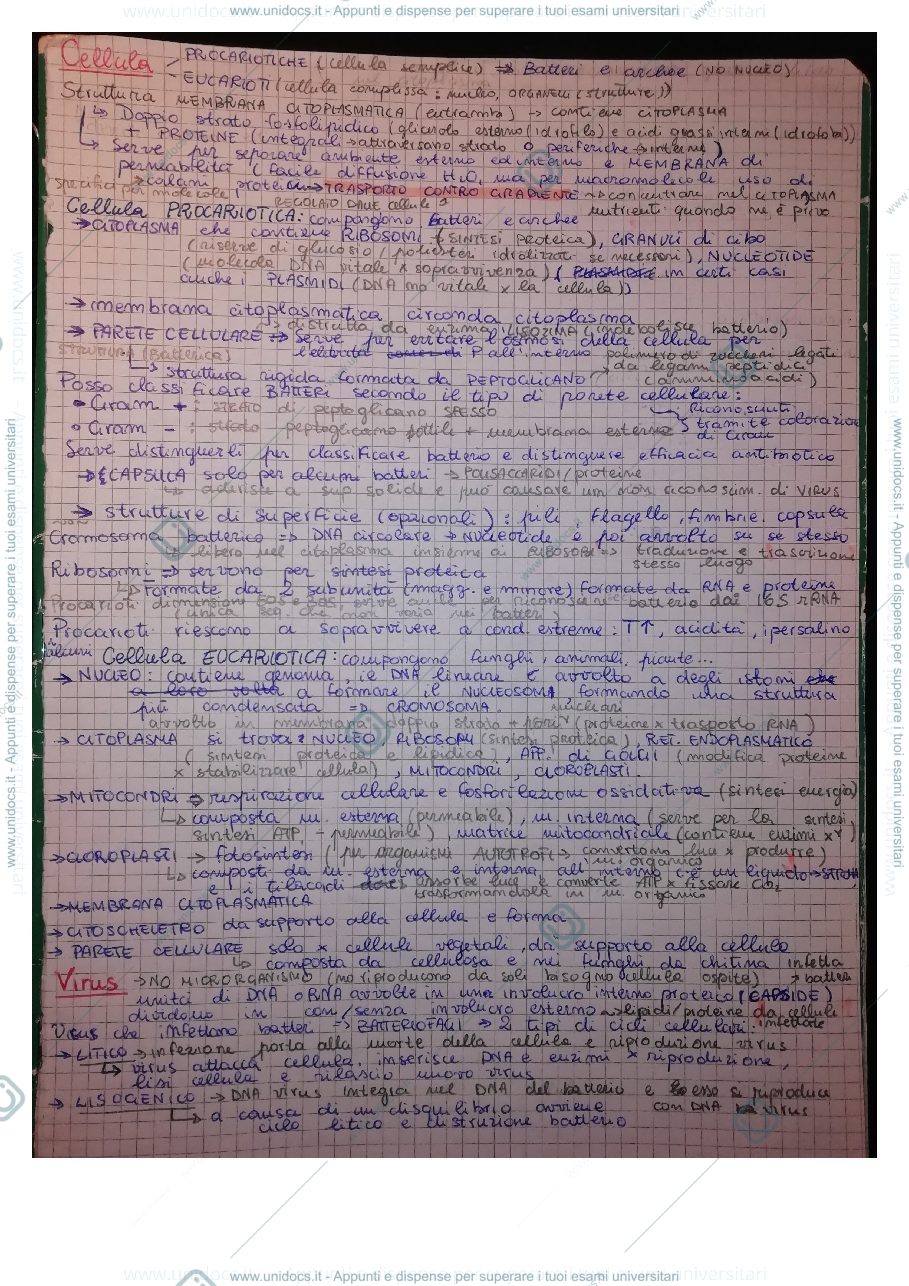 www.unidocs.it - Appunti e dispense per superare i tuoi esami universitari
Cellula → PROCARIOTICHE (cellula semplice) => Batteri e archee (NO NUCLEO)
- EUCARIOTI (cellula complissa: nucleo, ORGANELLI (strutture))
Struttura MEMBRANA CITOPLASMATICA (entrambi) → contiene CITOPLASMA
↳ Doppio strato fosfolipidico (glicerolo esterno (idrofilo) e acidi grassi interni (idrofobo))
+ PROTEINE (integrali → attraversano strato o periferiche → interne)
↳ Serve per separare ambiente esterno ed interno e MEMBRANA di
permeabilità (facile diffusione H₂O, ma per macromolecole uso di
specifica per molecole → canali proteici → TRASPORTO CONTRO GRADIENTE → concentrare nel CITOPLASMA
REGOLATO DALLE cellule nutrienti quando ne è privo
Cellula PROCARIOTICA: compongono Batteri e archee
→ CITOPLASMA che contiene RIBOSOMI (SINTESI proteica), GRANULI di cibo
(riserve di glucosio/poliesteri idrolizzati se necessari), NUCLEOTIDE
(molecola DNA vitale x sopravvivenza) (in certi casi
anche, PLASMIDI (DNA no vitale x la cellula))
→ membrana citoplasmatica circonda citoplasma
→ distrutta da enzima LISOZIMA (indebolisce batterio)
→ PARETE CELLULARE => serve per evitare l'osmosi della cellula per
STRUTTURA (Batterica) elevata P all'interno polimero di zuccheri legati
↳ struttura rigida formata da PEPTOGLICANO da legami peptidici
(amminoacidi)
Posso classificare BATTERI secondo il tipo di parete cellulare:
• Gram + : STRATO di peptoglicano SPESSO Riconosciuti
• Gram - : strato peptoglicano sottile + membrana esterna tramite colorazione
di Gram
Serve distinguerli per classificare batterio e distinguere efficacia antibiotico
→ CAPSULA solo per alcuni batteri → POLISACCARIDI/proteine
↳ aderisce a sup solide e può causare un non riconoscim. di VIRUS
→ strutture di superficie (opzionali): pili, flagello, fimbrie, capsula
Cromosoma batterico => DNA circolare → nucleotide è poi avvolto su se stesso
↳ libero nel citoplasma insieme ai RIBOSOMI => traduzione e trascrizione
stesso luogo
Ribosomi => servono per sintesi proteica
↳ Formate da 2 subunità (magg. e minore) formate da RNA e proteine
Procarioti dimensioni batterio dal 16S rRNA
(unica seq che non varia nei batteri
Procarioti riescono a sopravvivere a cond. estreme: T↑, acidità, ipersalino
alcuni
Cellula EUCARIOTICA: compongono funghi, animali, piante...
→ NUCLEO: contiene genoma, il DNA lineare è avvolto a degli istoni
a loro volta a formare il NUCLEOSOMA, formando una struttura
più condensata => CROMOSOMA. nucleari
avvolto in membrana doppio strato + pori (proteine x trasporto RNA)
→ CITOPLASMA si trova: NUCLEO, RIBOSOMI (sintesi proteica), RET. ENDOPLASMATICO
(sintesi proteica e lipidica), APP. di GOLGI (modifica proteine
x stabilizzare cellula), MITOCONDRI, CLOROPLASTI.
→ MITOCONDRI → respirazione cellulare e fosforilazione ossidativa (sintesi energia)
↳ composta m. esterna (permeabile), m. interna (serve per la sintesi,
sintesi ATP, - permeabile), matrice mitocondriale (contiene enzimi x
→ CLOROPLASTI → fotosintesi (per organismi AUTOTROFI → convertono luce x produrre)
m. organico
↳ composti da m. esterna e interna, all'interno c'è un liquido → STROMA
e i tilacoidi assorbe luce e converte ATP x fissare CO₂
trasformandola in m. organico
→ MEMBRANA CITOPLASMATICA
→ CITOSCHELETRO da supporto alla cellula e forma
→ PARETE CELLULARE solo x cellule vegetali, da supporto alla cellula
↳ composta da cellulosa e nei funghi da chitina infetta
Virus → NO MICRORGANISMO (no riproducono da soli bisogno cellula ospite) → batteri
unità di DNA o RNA avvolte in una involucro interno proteico (CAPSIDE)
dividono in con/senza involucro esterno → lipidi/proteine da cellule
infettate
Virus che infettano batteri => BATTERIOFAGI => 2 tipi di cicli cellulari:
→ LITICO → infezione porta alla morte della cellula e riproduzione virus
↳ virus attacca cellula, inserisce DNA e enzimi x riproduzione,
lisi cellula e rilascio nuovo virus
→ LISOGENICO → DNA virus integra nel DNA del batterio e esso si riproduce
con DNA virus
↳ a causa di un disquilibrio avviene
ciclo litico e distruzione batterio
www.unidocs.it - Appunti e dispense per superare i tuoi esami universitari